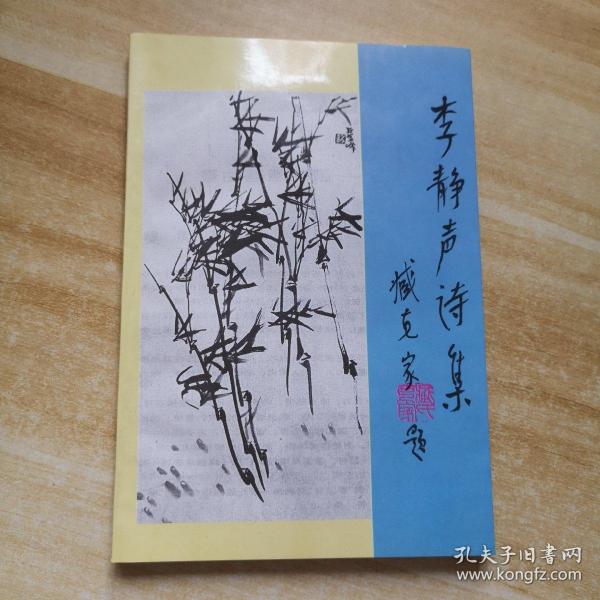 李静声诗集
臧克家题
孔夫子旧书网
www.kongfz.com